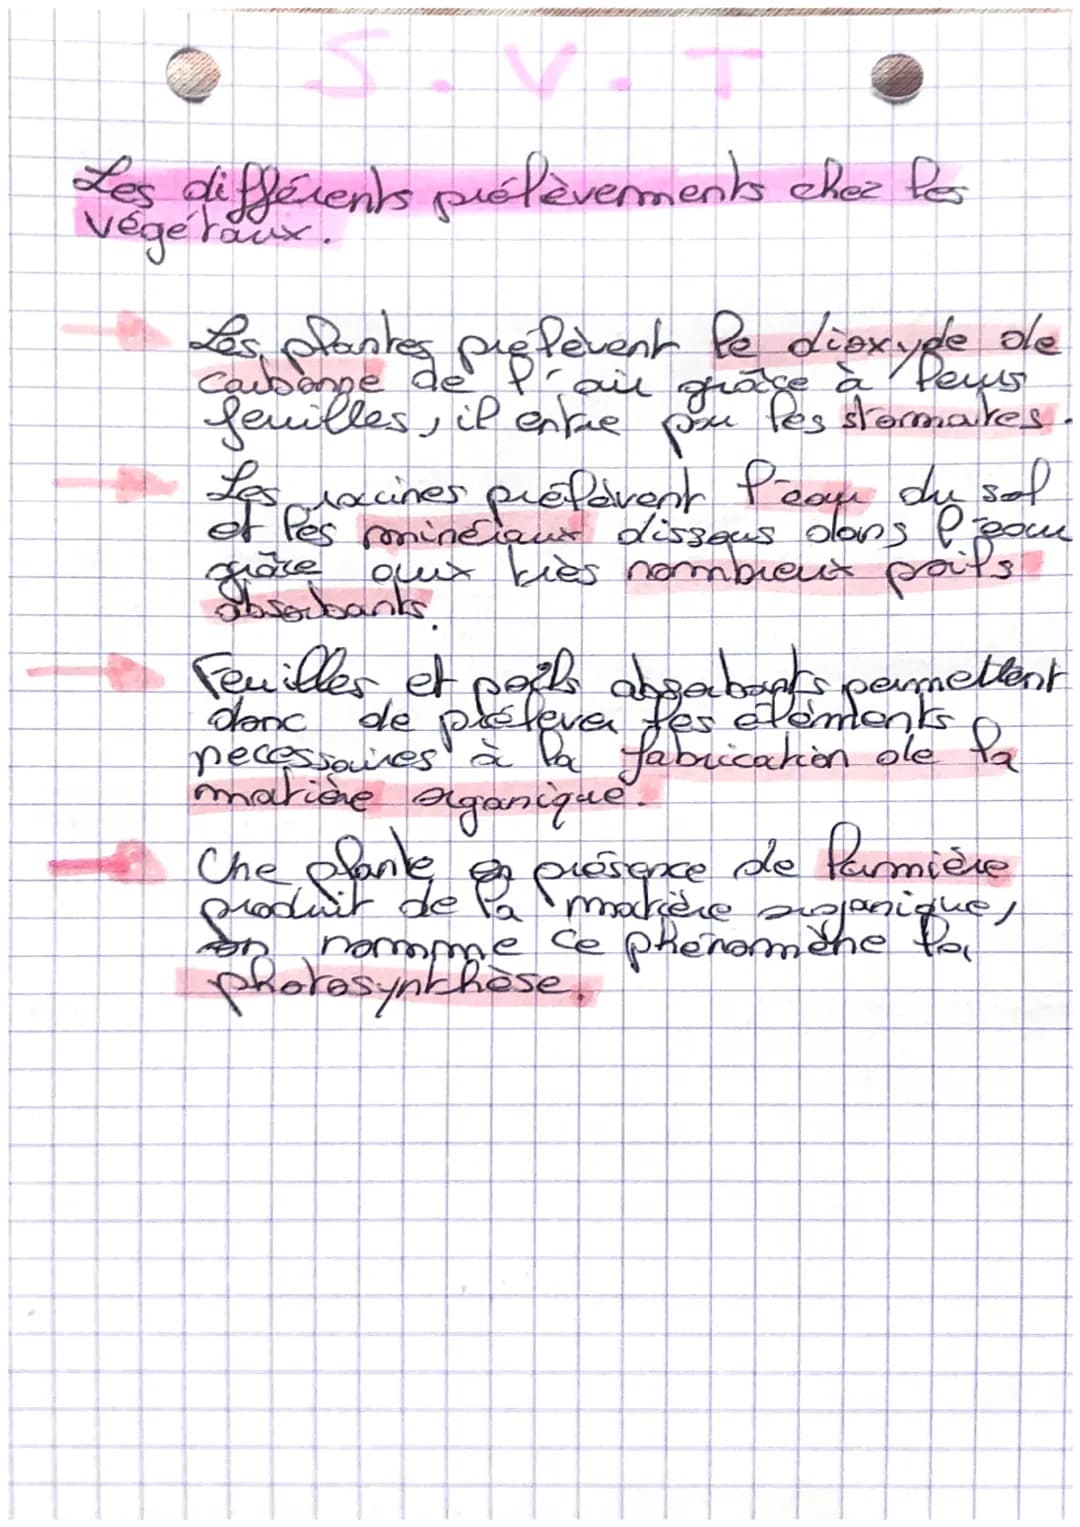 S.V.T
Les différents prélèvements chez les
végétaux.
Les plantes prélèvent le dioxyde de
carbone de l'air grâce à leurs
feuilles, il entre par les stomates.
Les racines prélèvent l'eau du sol
et les minéraux dissous dans l'eau
grâce aux très nombreux poils
absorbants.
Feuilles et poils absorbants permettent
donc de prélever les éléments
necessaires à la fabrication de la
matière organique.
Une plante en présence de lumière
produit de la matière organique,
on nomme ce phénomène la
photosynthèse.